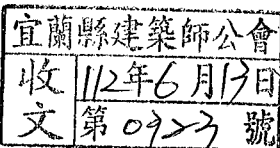 宜蘭縣建築師公會
收文
112年6月13日
第0923號